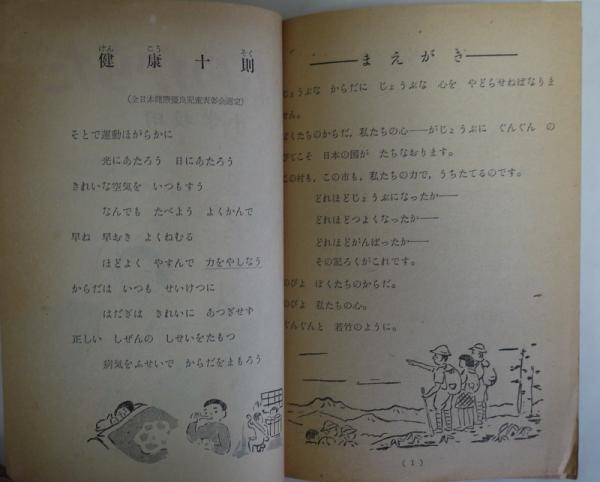 健康十則
けん こう そく
(全日本健康優良児童表彰会選定)
そとで運動ほがらかに
光にあたろう 日にあたろう
きれいな空気を いつもすう
なんでも たべよう よくかんで
早ね 早おき よくねむる
ほどよく やすんで 力をやしなう
からだは いつも せいけつに
はだぎは きれいに あつぎせず
正しい しぜんの しせいをたもつ
病気をふせいで からだをまもろう
まえがき
じょうぶな からだに じょうぶな 心を やどらせねばなりま
せん。
ぼくたちのからだ，私たちの心――がじょうぶに ぐんぐん の
びてこそ 日本の国が たちなおります。
この村も，この市も，私たちの力で，うちたてるのです。
どれほどじょうぶになったか――
どれほどつよくなったか――
どれほどがんばったか――
その記ろくがこれです。
のびよ ぼくたちのからだ。
のびよ 私たちの心。
ぐんぐんと 若竹のように。
(1)